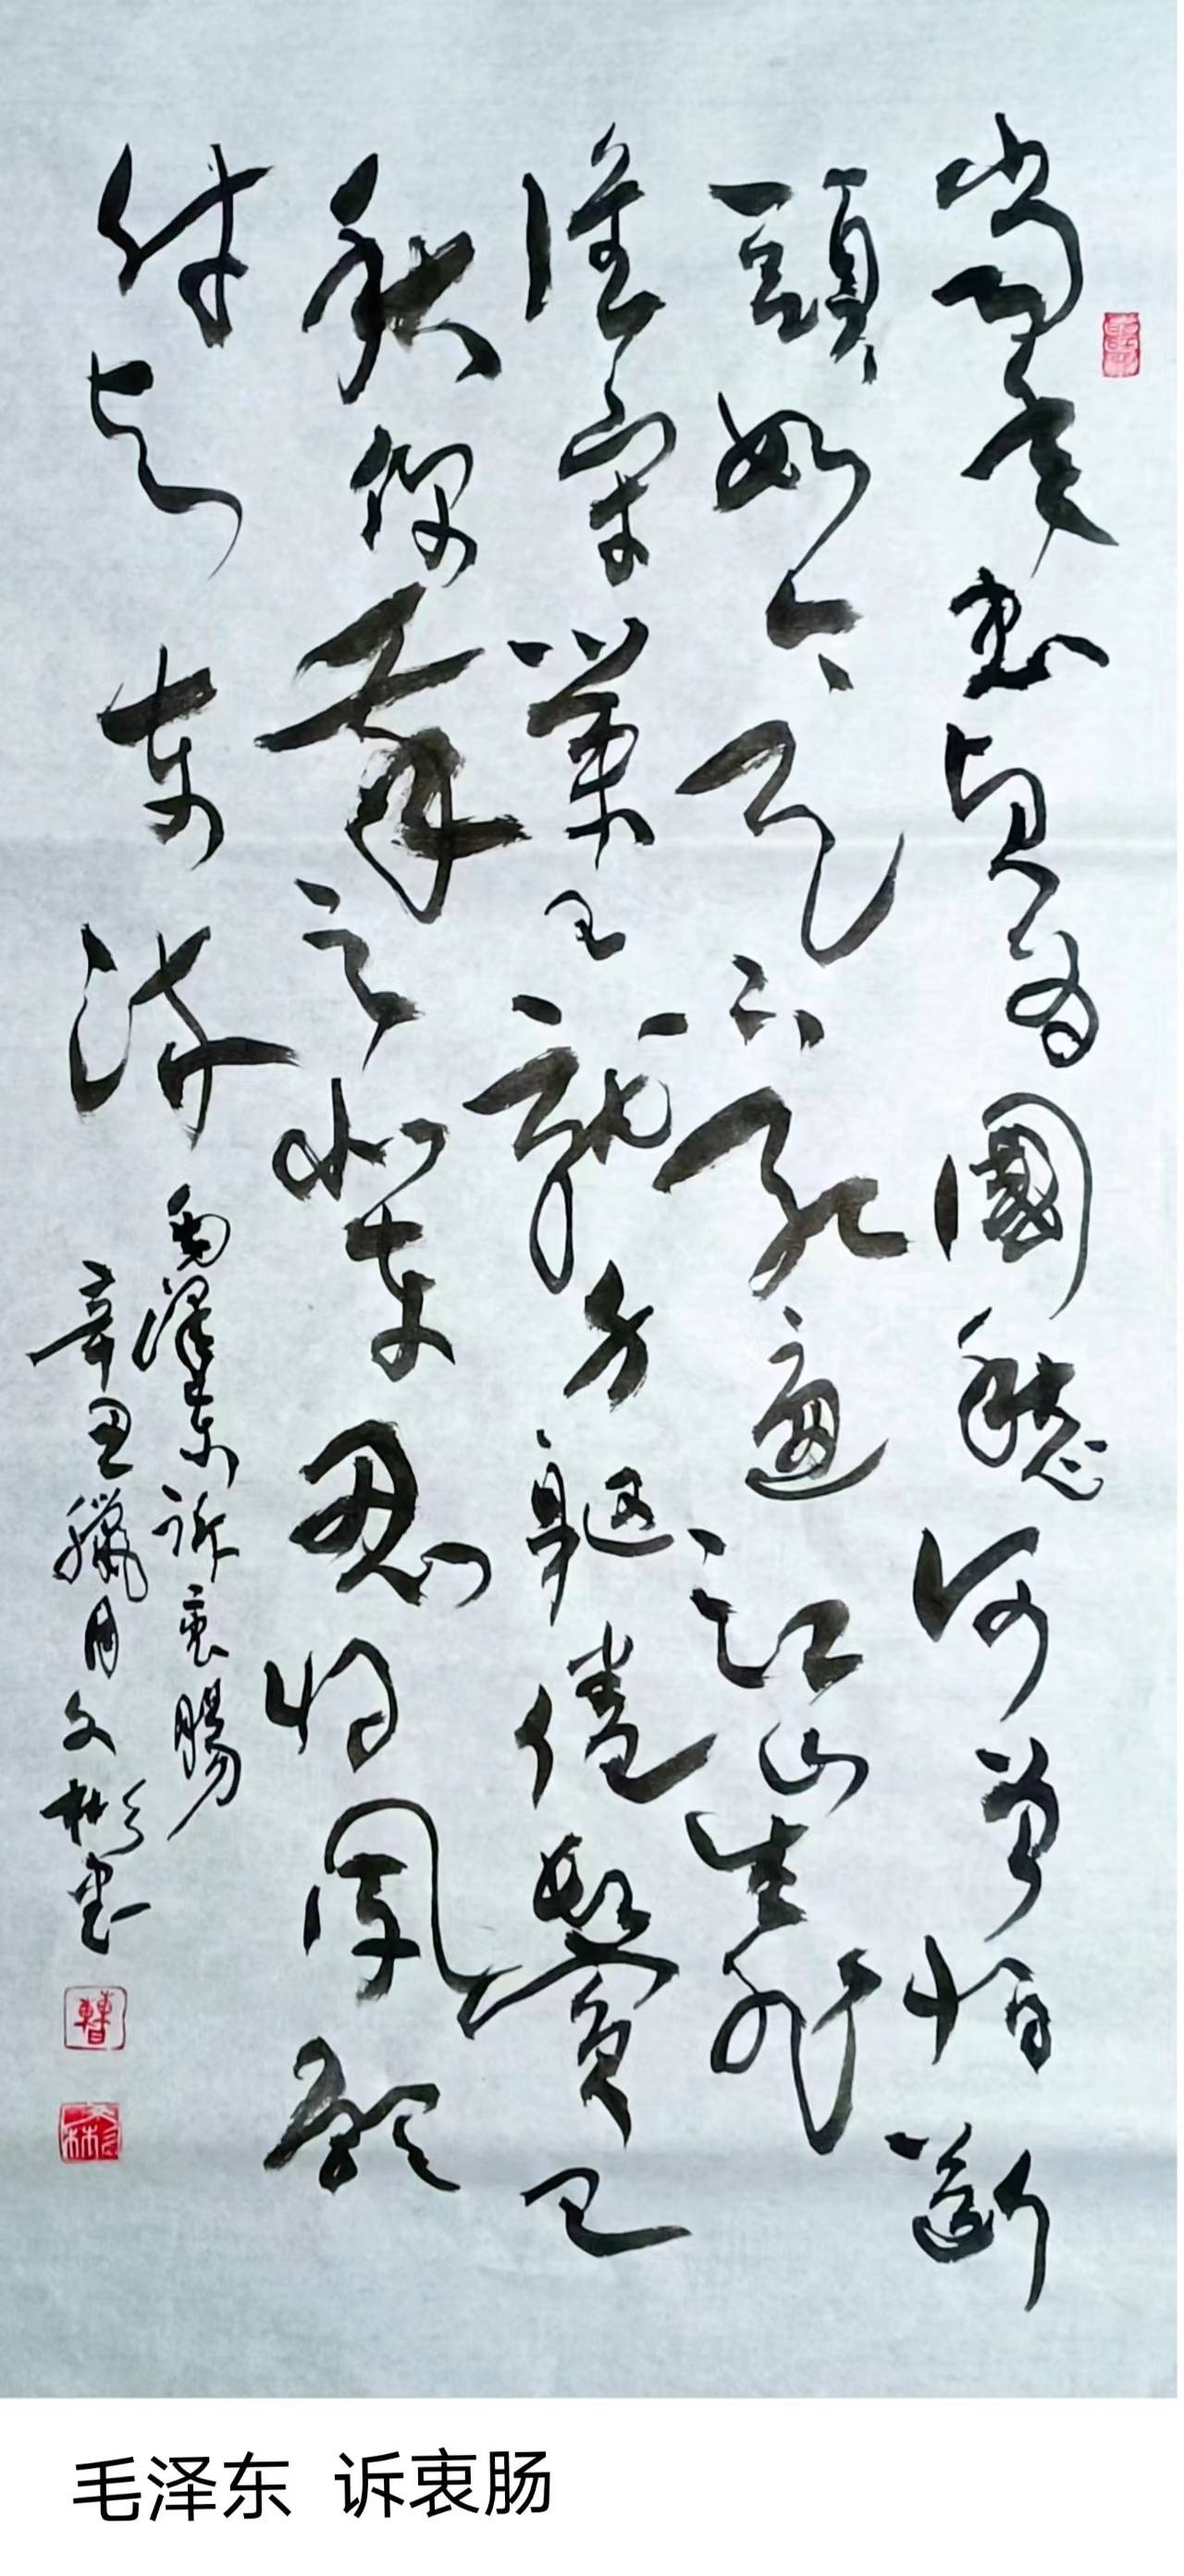 當年忠贞为國愁何曾怕斷
頭如今天下红遍江山靠
谁守業未就身軀倦鬓已
秋你我之辈忍将夙愿
付与东流
毛泽东诉衷腸
辛丑臘月文彬书
曹
文彬
毛泽东 诉衷肠